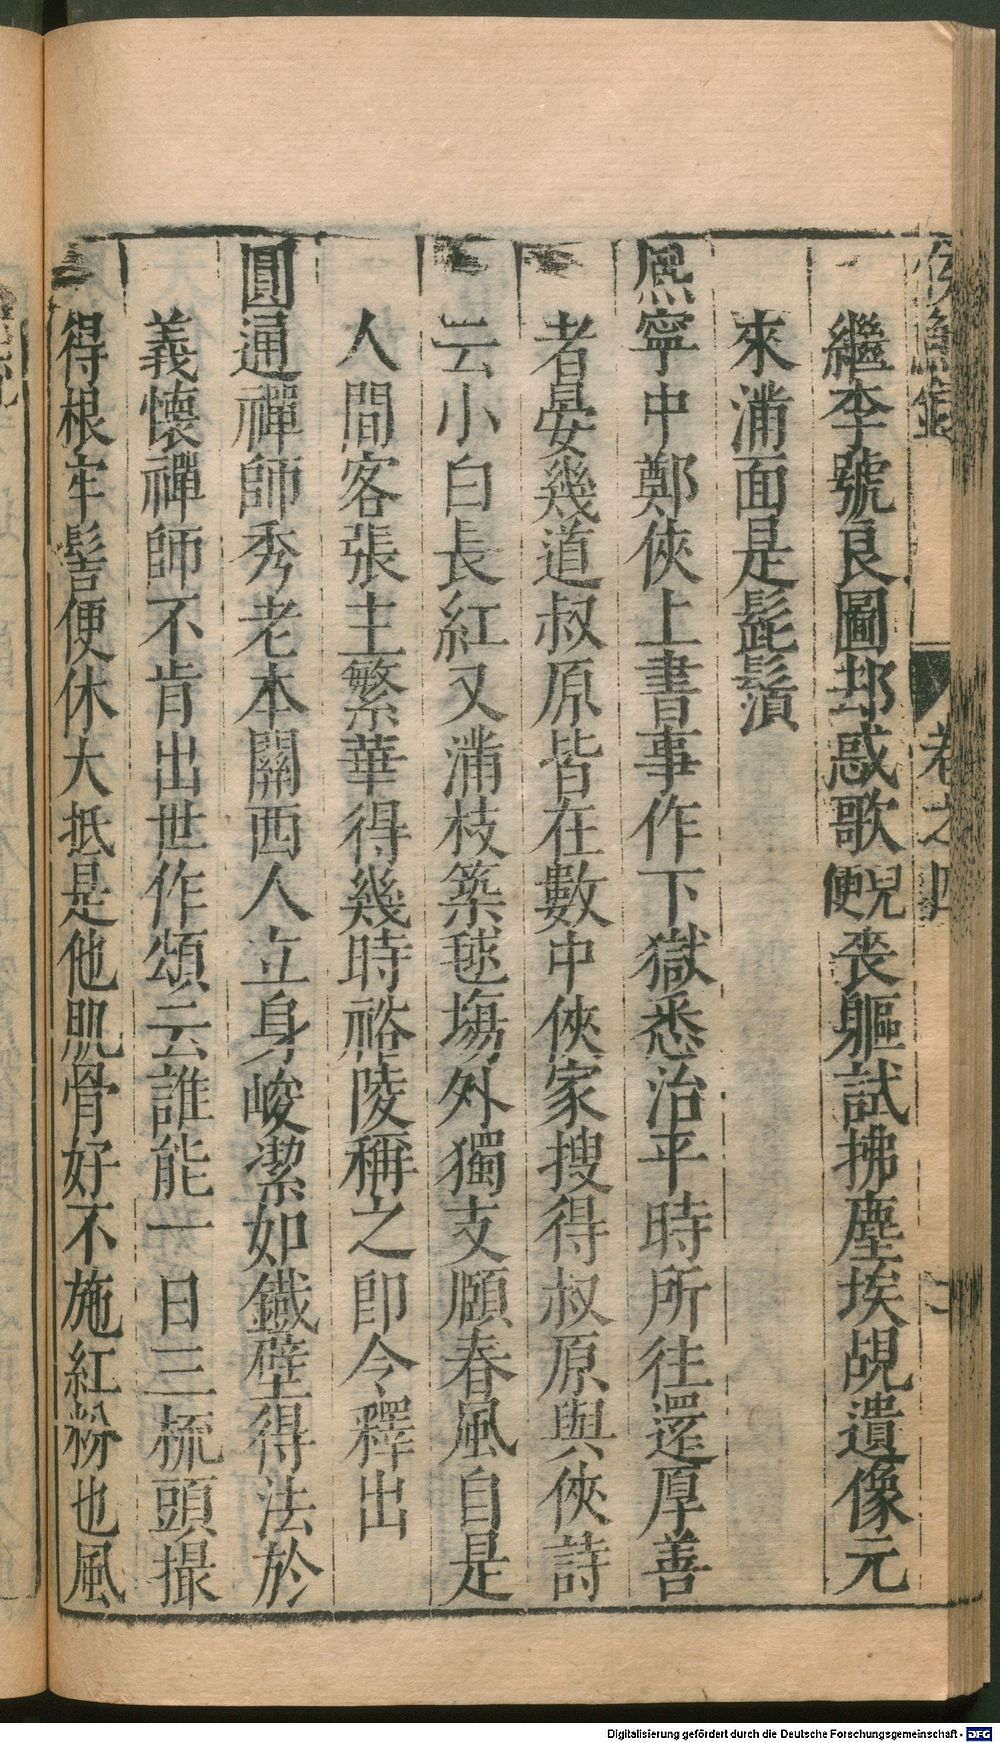 侯鯖錄 卷之四
繼李號良圖却惑歌便兒喪軀試拂塵埃覘遺像元
來滿面是髭鬚
熙寧中鄭俠上書事作下獄悉治平時所往還厚善
者晏幾道叔原皆在數中俠家搜得叔原與俠詩
云小白長紅又滿枝築毬場外獨支頤春風自是
人間客張主繁華得幾時裕陵稱之即令釋出
圓通禪師秀老本關西人立身峻潔如鐵壁得法於
義懷禪師不肯出世作頌云誰能一日三梳頭撮
得根牢髻便休大抵是他肌骨好不施紅粉也風
Digitalisierung gefördert durch die Deutsche Forschungsgemeinschaft - DFG